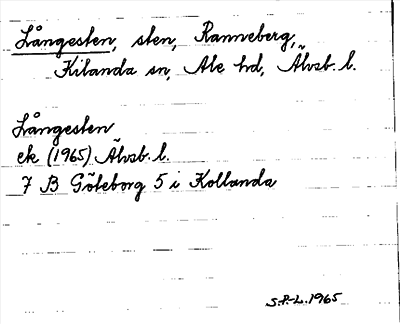 Långesten, sten, Ranneberg,
Kilanda sn, Ale hd, Älvsb. l.
Långesten
ek (1965) Älvsb. l.
7 B Göteborg 5 i Kollanda
S.P.-L. 1965